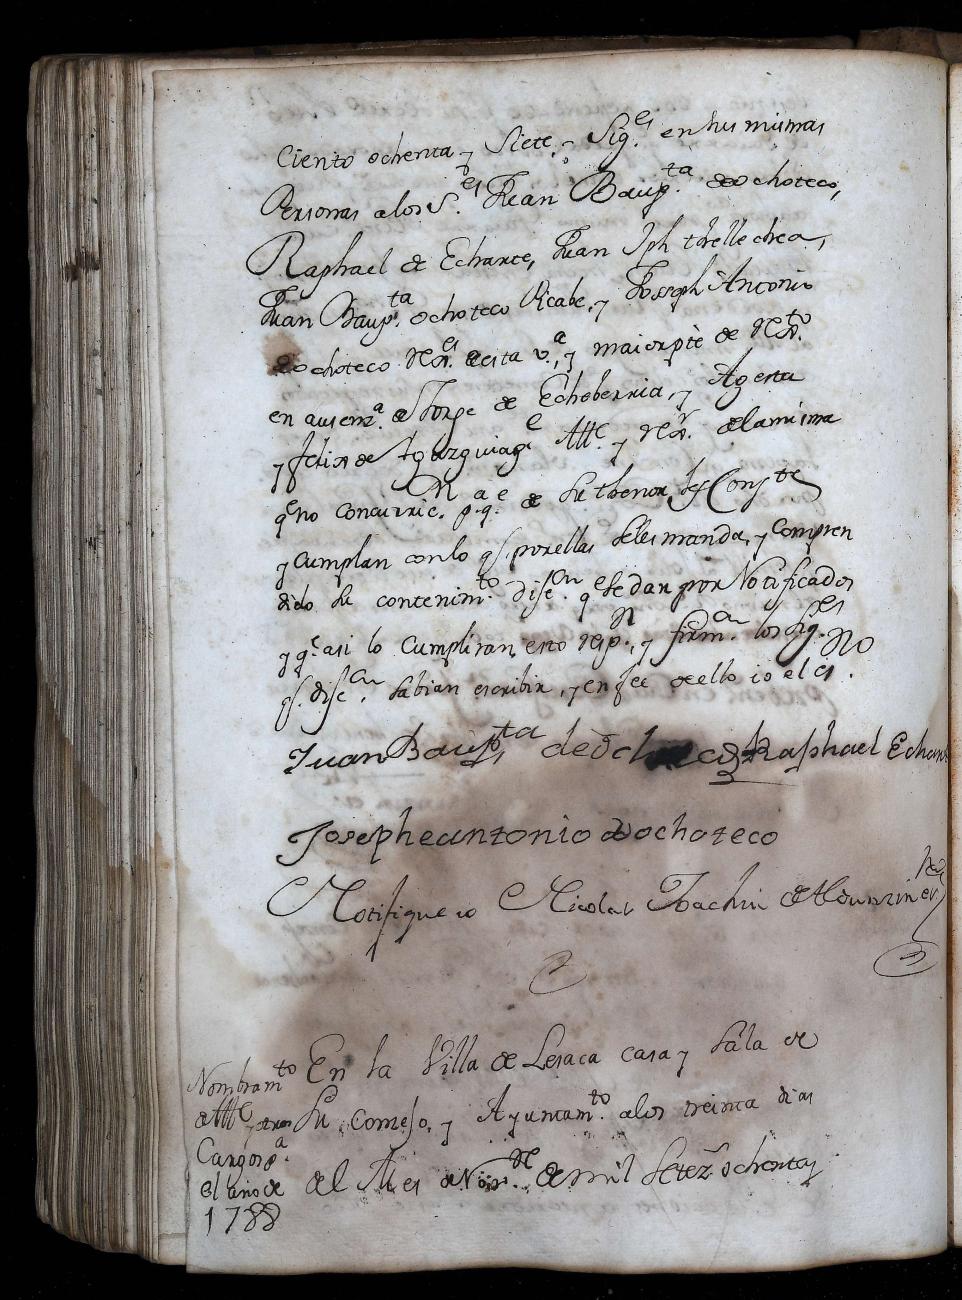 Ciento ochenta, y Siete, y Sig.es en sus mismas
Personas a los S.es Juan Baup.ta de ochoteco,
Raphael de Echarte, Juan Jph thellechea,
Juan Baup.ta ochoteco Vicabe, y Joseph Antonio
de ochoteco Rex.es de esta v.a, y maior pte de Rex.to
en ausenz.a de Jorge de Echeberria, y Agesta
y felix de Alc.e y rex.r de la misma
q.e no concurrie. p.a q.e de su thenor les Conste
y cumplan con lo q.e por ellas se les manda, y Compren
dido su contenim.to dise.on q.e se dan por Notificados
y q.e asi lo cumpliran, esto resp.n, y firm.on los sig.es
q.e dise.on sabian escribir, y en fee de ello io el es.no
Juan Baup.ta de Raphael Echar
Josephe antonio de ochoteco
Notifique io Nicolas Joachin de
Nombram.to
de Alc.e y otros
Cargos p.a
el año de
1788
En la Villa de Lesaca casa y Sala de
Su Consejo, y Ayuntam.to a los treinta dias
del Mes de Nov.re de mil Setez.s ochenta y